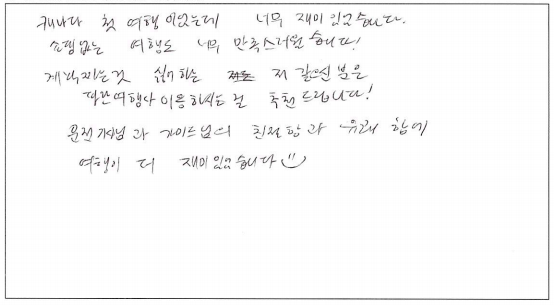 캐나다 첫 여행 이었는데 너무 재미 있었습니다.
쇼핑 없는 여행도 너무 만족스러웠습니다!
계획 짜는것 싫어 하는 저 같으신 분은
여행사 이용 하시는 걸 추천 드립니다!
운전 기사님 과 가이드 님의 친절 함 과 유쾌 함에
여행이 더 재미 있었습니다